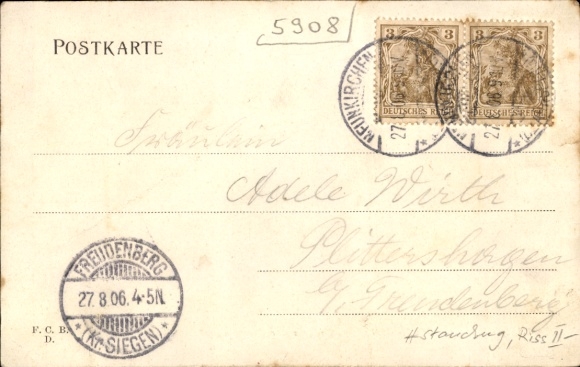 5908
POSTKARTE
3 3
DEUTSCHES REICH
NEUNKIRCHEN
27
Fräulein
Adele Wirth
Plittershagen
b/Freudenberg
FREUDENBERG
27.8.06.4-5N.
*(Kr. SIEGEN)*
F. C. B.
D.
Riss II-